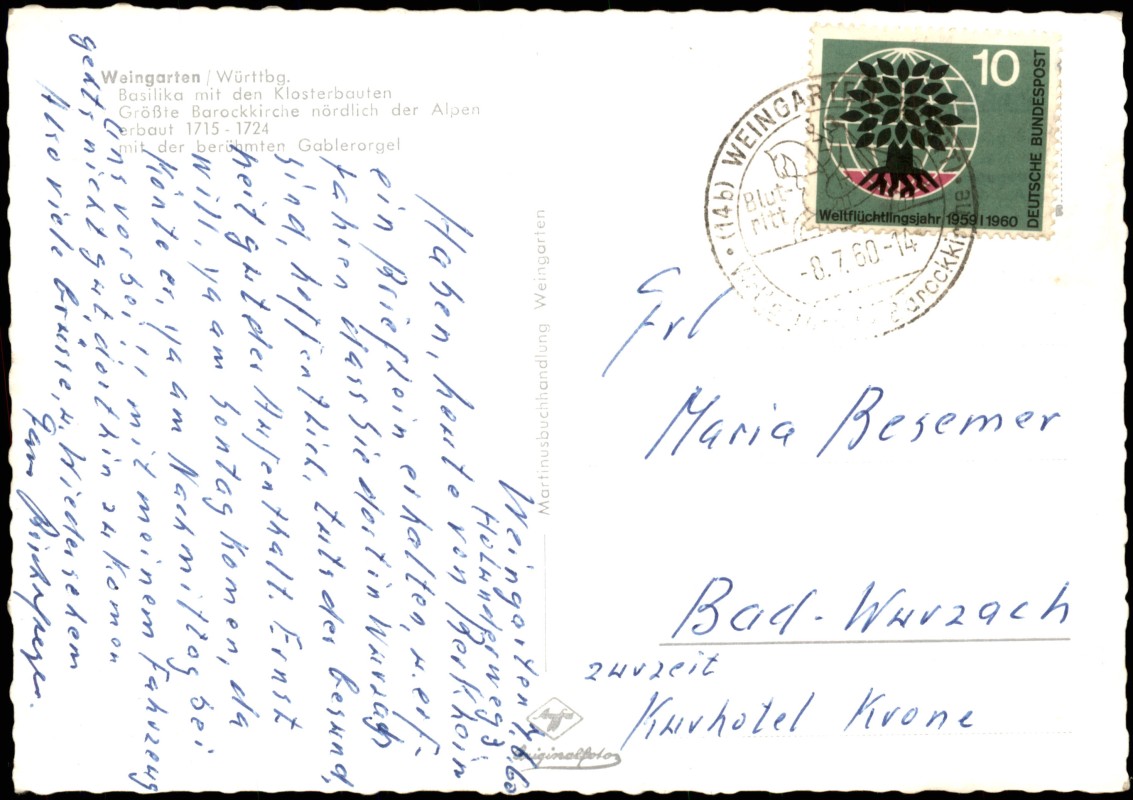 Weingarten / Württbg.
Basilika mit den Klosterbauten
Größte Barockkirche nördlich der Alpen
erbaut 1715 - 1724
mit der berühmten Gablerorgel
Weingarten,
Holunderweg 3
Haben, heute von
ein Brieflein erhalten, u. erf-
fahren dass Sie dort in Wurzach
sind, hoffentlich, tuts der besund,
heit gut der Aufenthalt. Ernst
will, ya am Sontag komen, da
könte er, ya am Nachmittag bei
Uns vorbei,; mit meinem Fahrzeug
geht's nicht gut dorthin zu komen
Also viele Grüsse, u. Wiedersehen
Fam
Martinusbuchhandlung Weingarten
Agfa
Originalfoto
10
DEUTSCHE BUNDESPOST
Weltflüchtlingsjahr 1959 | 1960
(14b) WEINGARTEN
Blut-
ritt
-8.7.60-14
Barockki
Frl
Maria Besemer
Bad-Wurzach
zurzeit
Kurhotel Krone